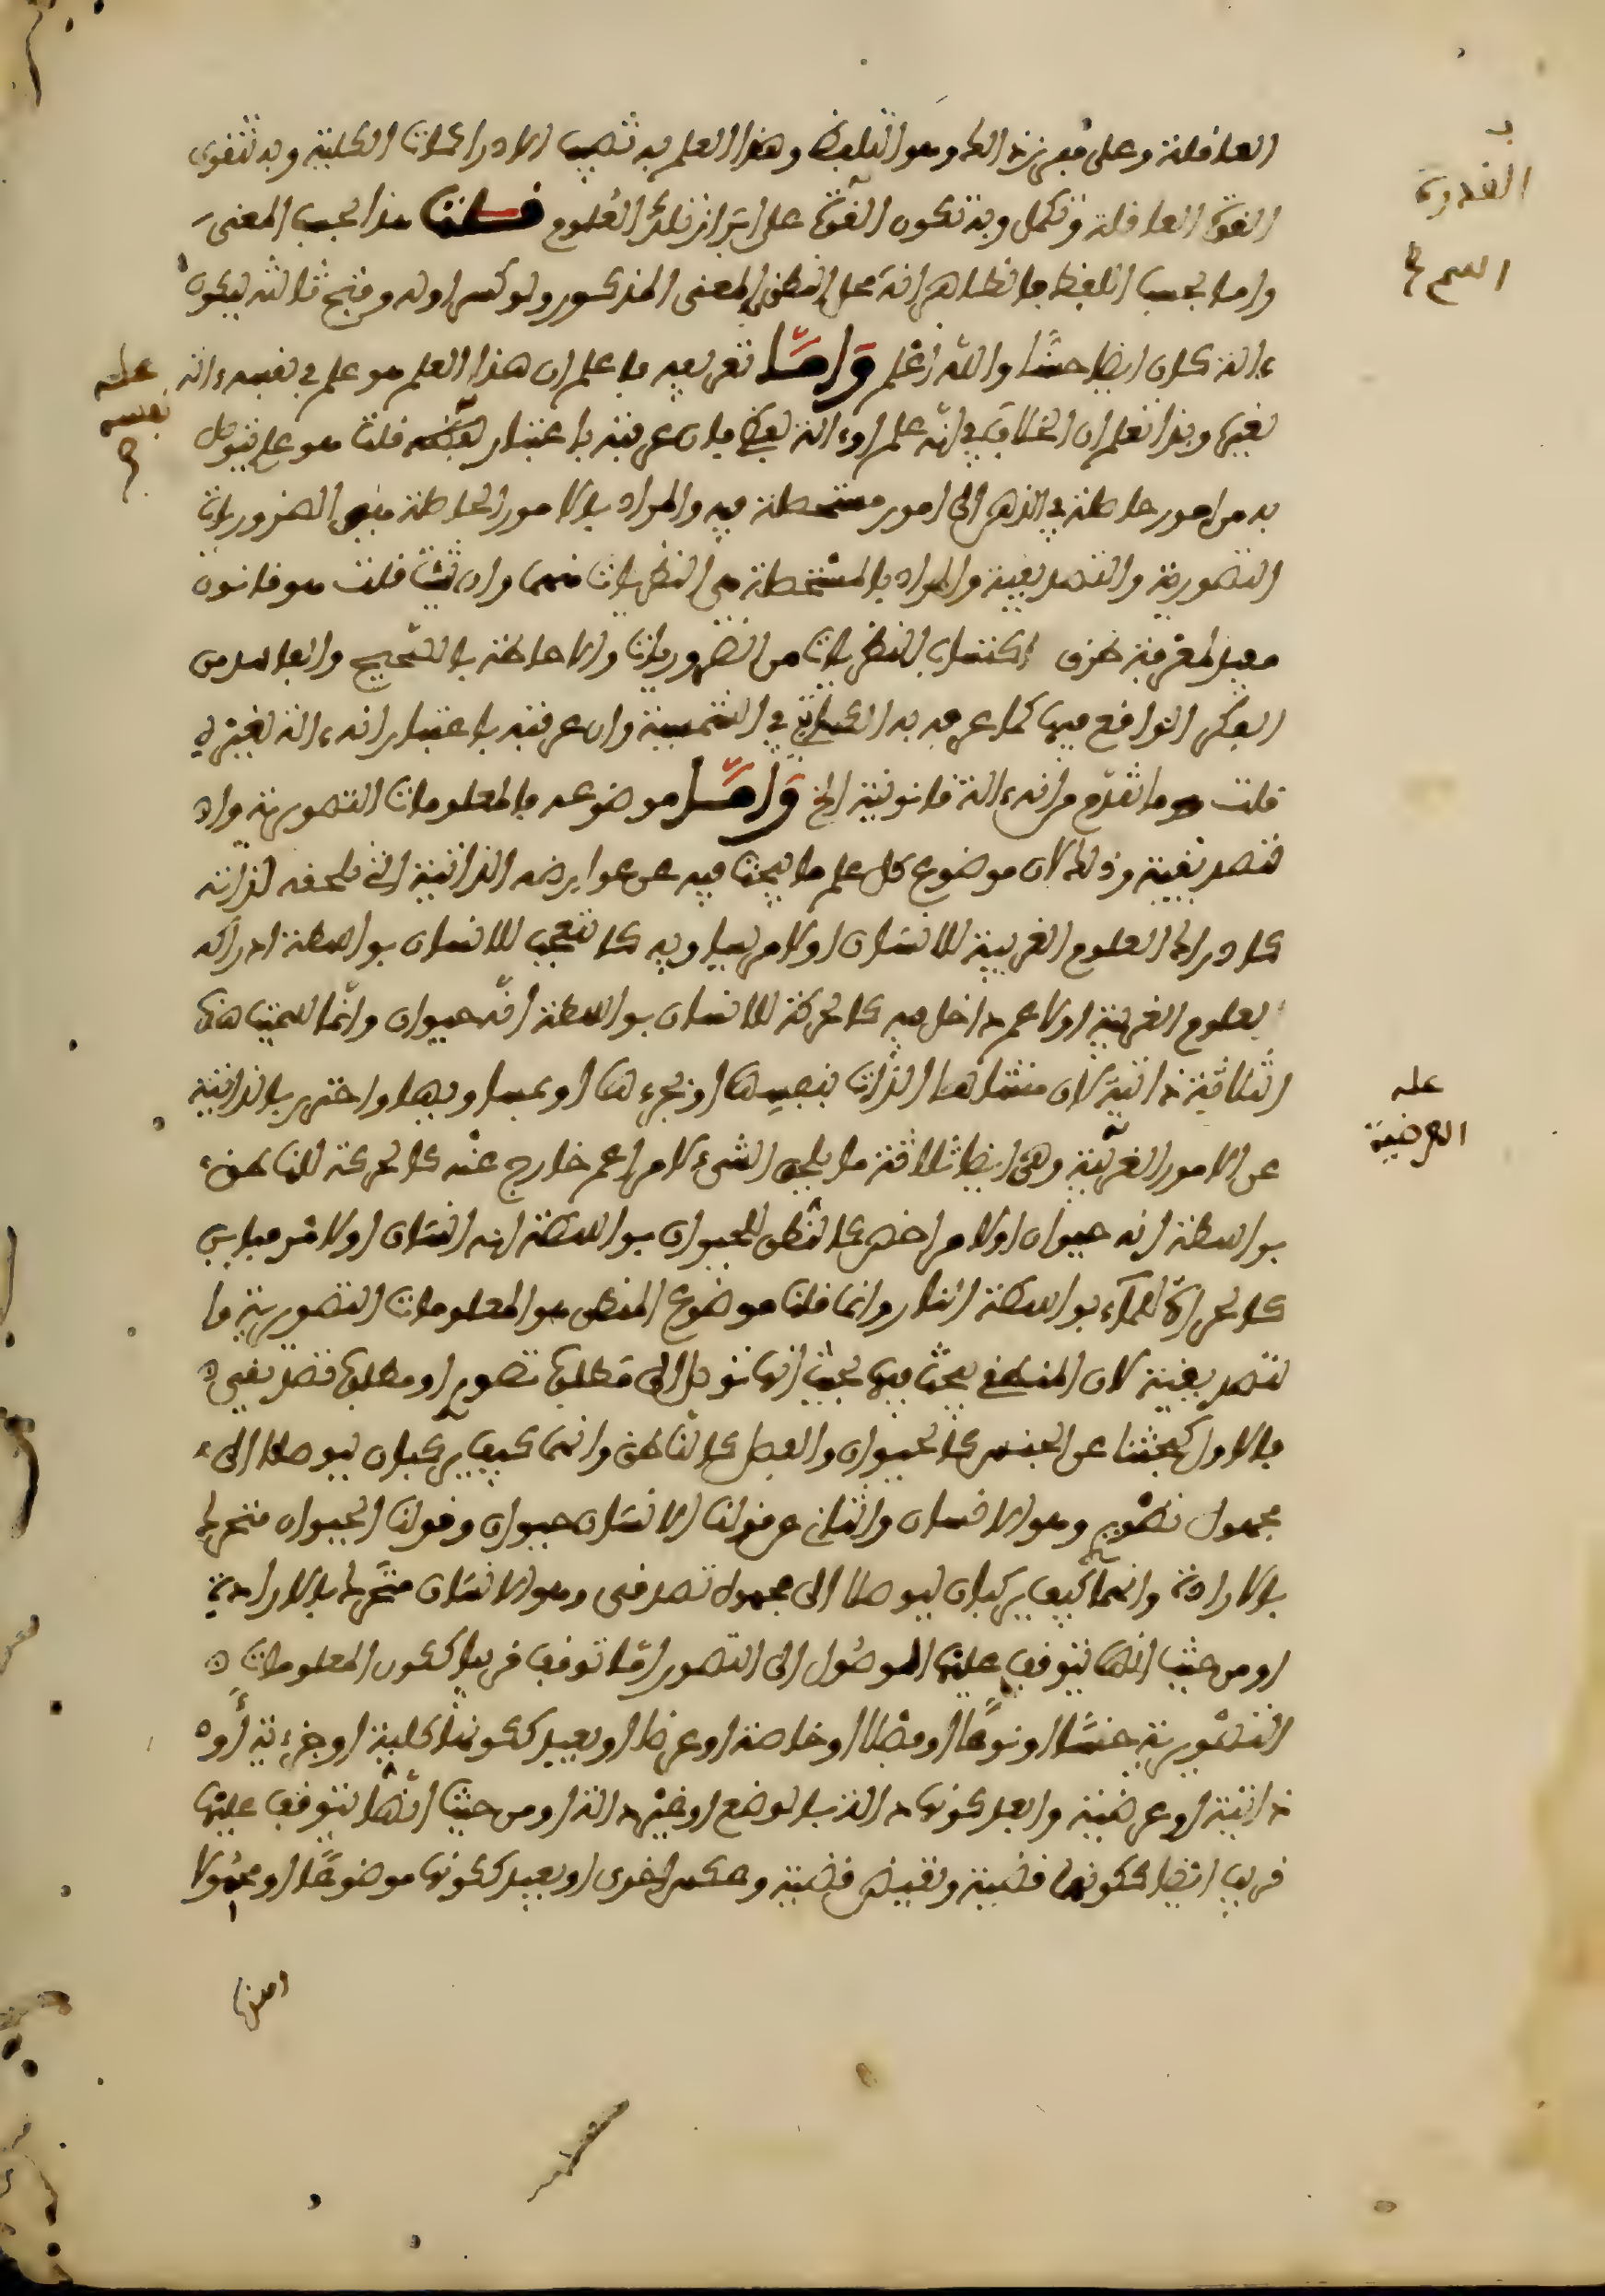 العاقلة وعلى مبرز ذلك وهو التلفظ وهذا العلم به تصيب الادراكات الكلية وبه تتقوى
القوة العاقلة وتكمل وبه تكون القوة على ابراز تلك العلوم قلت هذا بحسب المعنى
واما بحسب اللفظ فالظاهر انه محل النطق بالمعنى المذكور ولو كسر اوله وفتح ثالثه ليكون
ءالة كان ايضا حسنا والله أعلم وَأمَّا تعريفه فاعلم ان هذا العلم هو علم في نفسه ءالة
لغيره وبذا تعلم ان الخلاف في انه علم او ءالة لفظي فان عرفته باعتبار نفسه قلت هو علم يتوصل
به من امور حاصلة في الذهن الى امور مستحصلة فيه والمراد بالامور الحاصلة فيه الضروريات
التصورية والتصديقية والمراد بالمستحصلة هي النظريات منهما وان شئت قلت هو قانون
مفيد لمعرفة طرق اكتساب النظريات من الضروريات والاحاطة بالصحيح والفاسد من
الفكر الواقع فيها كما عرفه به الكاتبي في الشمسية وان عرفته باعتبار انه ءالة لغيره
قلت هو ما تقدم من انه ءالة قانونية الخ وَأمَّا موضوعه فالمعلومات التصورية وال
تصديقية وذلك لان موضوع كل علم ما يبحث فيه عن عوارضه الذاتية التي تلحقه لذاته
كادراك العلوم الغريبة للانسان او لامر يساويه كالتعجب للانسان بواسطة ادراكه
لعلوم الغريبة او لاعم داخل فيه كالحركة للانسان بواسطة انه حيوان وانما سميت هذه
الثلاثة ذاتية لان منشأها الذات بنفسها او بجزءها او بمساويها واحترز بالذاتية
عن الامور الغريبة وهي ايضا ثلاثة ما يلحق الشيء لامر اعم خارج عنه كالحركة للناطق
بواسطة انه حيوان او لامر اخص كالنطق للحيوان بواسطة انه انسان او لامر مباين
كالحرارة للماء بواسطة النار وانما قلنا موضوع المنطق هو المعلومات التصورية وا
لتصديقية لان المنطقي يبحث فيها بحيث انها توصل الى مطلوب تصوري او مطلوب تصديقي
فالاول كبحثنا عن الجنس كالحيوان والفصل كالناطق وانهما كيف يركبان ليوصلا الى
مجهول تصوري وهو الانسان والثاني عن قولنا الانسان حيوان وقولنا الحيوان متحرك
بالارادة وانهما كيف يركبان ليوصلا الى مجهول تصديقي وهو الانسان متحرك بالارادة
او من حيث انها يتوقف عليها الموصول الى التصور اما توقف قريب ككون المعلومات
التصورية جنسا او نوعا او فصلا او خاصة او عرضا او بعيد ككونها كلية او جزءية او
ذاتية او عرضية وابعد كونها دالة بالوضع او غير دالة او من حيث انها يتوقف عليها
قريب ايضا ككونها قضية ونقيض قضية وعكس اخرى او بعيد ككونها موضوعا او محمولا
القدرة
العرضية